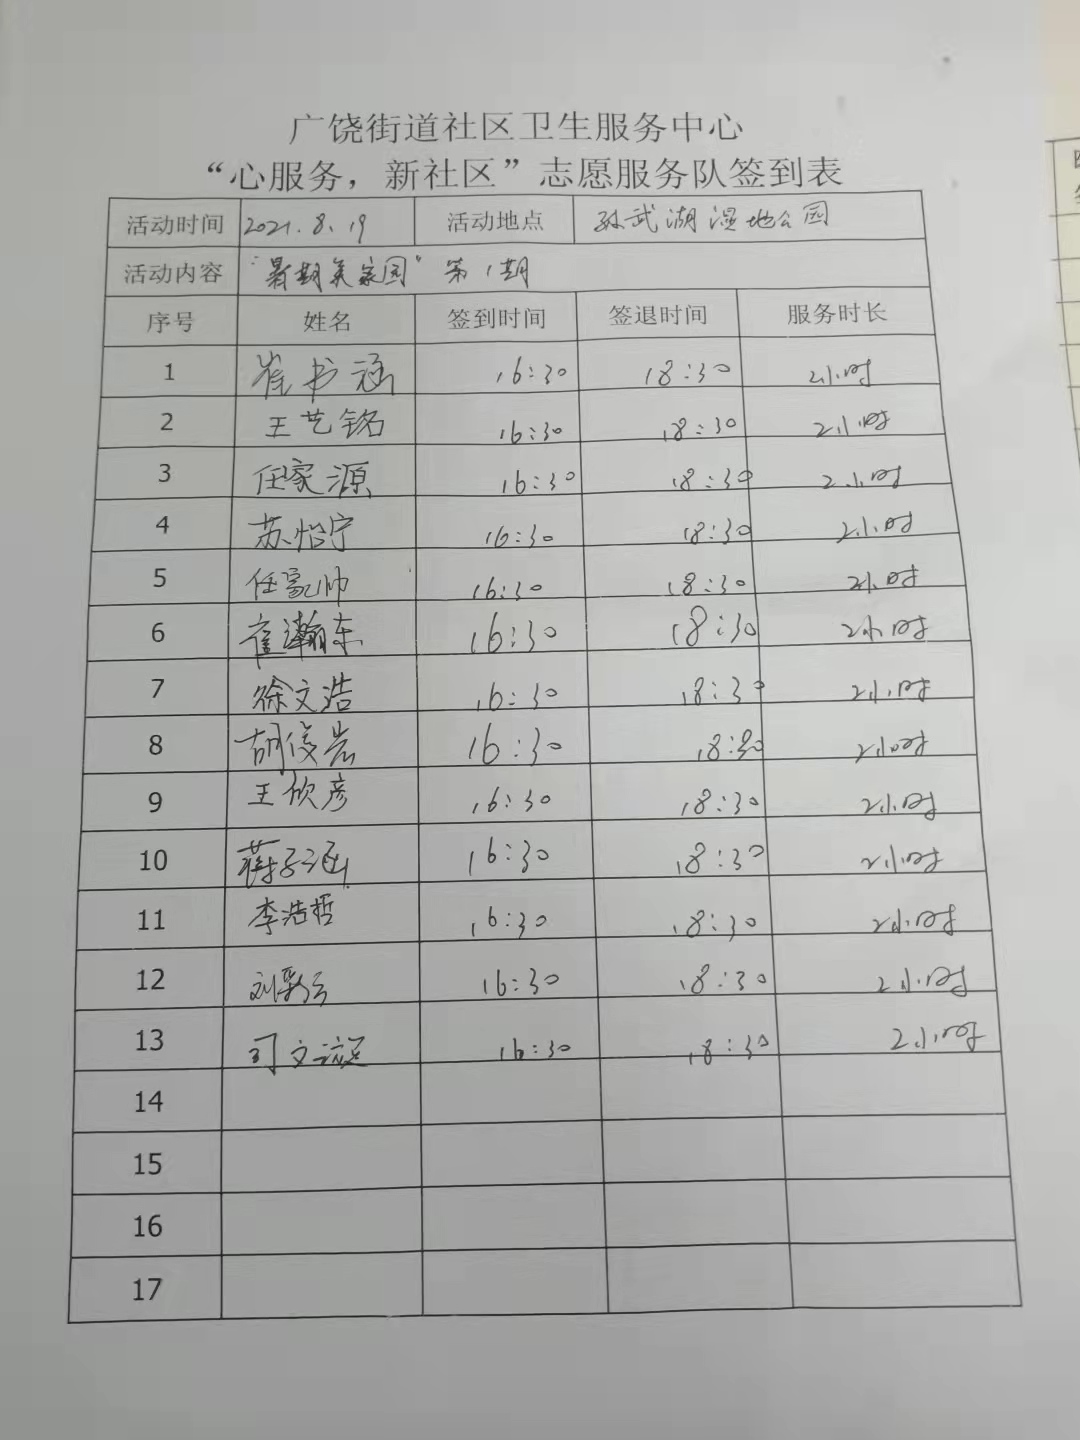 广饶街道社区卫生服务中心
“心服务，新社区”志愿服务队签到表
活动时间 2021.8.19 活动地点 孙武湖湿地公园
活动内容 “暑期美家园”第1期
序号 姓名 签到时间 签退时间 服务时长
1 崔书涵 16:30 18:30 2小时
2 王艺铭 16:30 18:30 2小时
3 任家源 16:30 18:30 2小时
4 苏怡宁 16:30 18:30 2小时
5 任家帅 16:30 18:30 2小时
6 崔瀚东 16:30 18:30 2小时
7 徐文浩 16:30 18:30 2小时
8 胡俊岩 16:30 18:30 2小时
9 王欣彦 16:30 18:30 2小时
10 蒋子涵 16:30 18:30 2小时
11 李浩哲 16:30 18:30 2小时
12 16:30 18:30 2小时
13 16:30 18:30 2小时
14
15
16
17